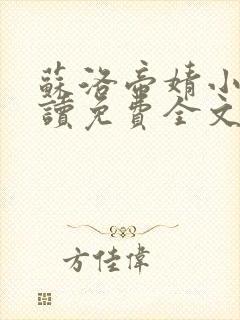 蘇洛帝婧小
讀免費全文
方佳偉